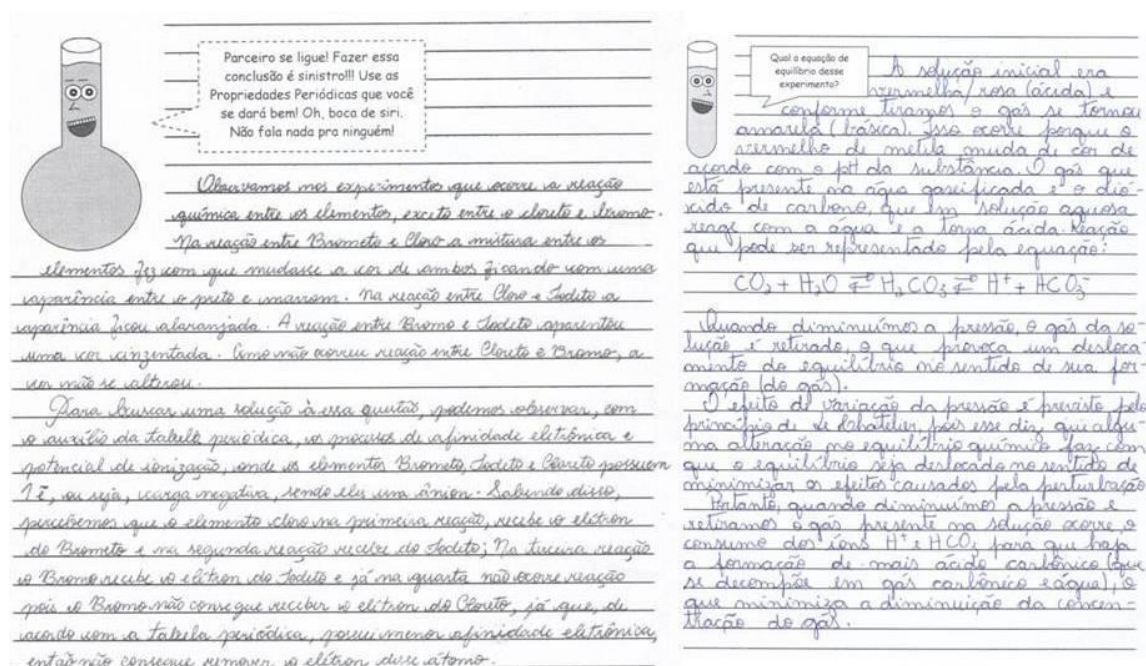 Parceiro se ligue! Fazer essa
conclusão é sinistro!!! Use as
Propriedades Periódicas que você
se dará bem! Oh, boca de siri.
Não fala nada pra ninguém!
Observamos nos experimentos que ocorre a reação
química entre os elementos, exceto entre o cloreto e bromo.
Na reação entre Brometo e Cloro a mistura entre os
elementos fez com que mudasse a cor de ambos ficando com uma
aparência entre o preto e marrom. Na reação entre Cloro e Iodeto a
aparência ficou alaranjada. A reação entre Bromo e Iodeto aparentou
uma cor cinzentada. Como não ocorreu reação entre Cloreto e Bromo, a
cor não se alterou.
Para buscar uma solução à essa questão, podemos observar, com
o auxílio da tabela periódica, os processos de afinidade eletrônica e
potencial de ionização, onde os elementos Brometo, Iodeto e Cloreto possuem
1ē, ou seja, carga negativa, sendo eles um ânion. Sabendo disso,
percebemos que o elemento cloro na primeira reação, recebe o elétron
do Brometo e na segunda reação recebe do Iodeto; Na terceira reação
o Bromo recebe o elétron do Iodeto e já na quarta não ocorre reação
pois o Bromo não consegue receber o elétron do Cloreto, já que, de
acordo com a tabela periódica, possui menor afinidade eletrônica,
então não consegue remover o elétron desse átomo.
Qual a equação de
equilíbrio desse
experimento?
A solução inicial era
vermelha/rosa (ácida) e
conforme tiramos o gás se tornou
amarela (básica). Isso ocorre porque o
vermelho de metila muda de cor de
acordo com o pH da substância. O gás que
está presente na água gaseificada é o dió-
xido de carbono, que em solução aquosa
reage com a água e a torna ácida. Reação
que pode ser representado pela equação:
CO₂ + H₂O ⇄ H₂CO₃ ⇄ H⁺ + HCO₃⁻
Quando diminuímos a pressão, o gás da so-
lução é retirado, o que provoca um desloca-
mento do equilíbrio no sentido de sua for-
mação (do gás).
O efeito de variação da pressão é previsto pelo
princípio de Le Chatelier, pois esse diz que algu-
ma alteração no equilíbrio químico faz com
que o equilíbrio seja deslocado no sentido de
minimizar os efeitos causados pela perturbação
Portanto, quando diminuímos a pressão e
retiramos o gás presente na solução ocorre o
consumo dos íons H⁺ e HCO₃⁻ para que haja
a formação de mais ácido carbônico (que
se decompõe em gás carbônico e água), o
que minimiza a diminuição da concen-
tração do gás.